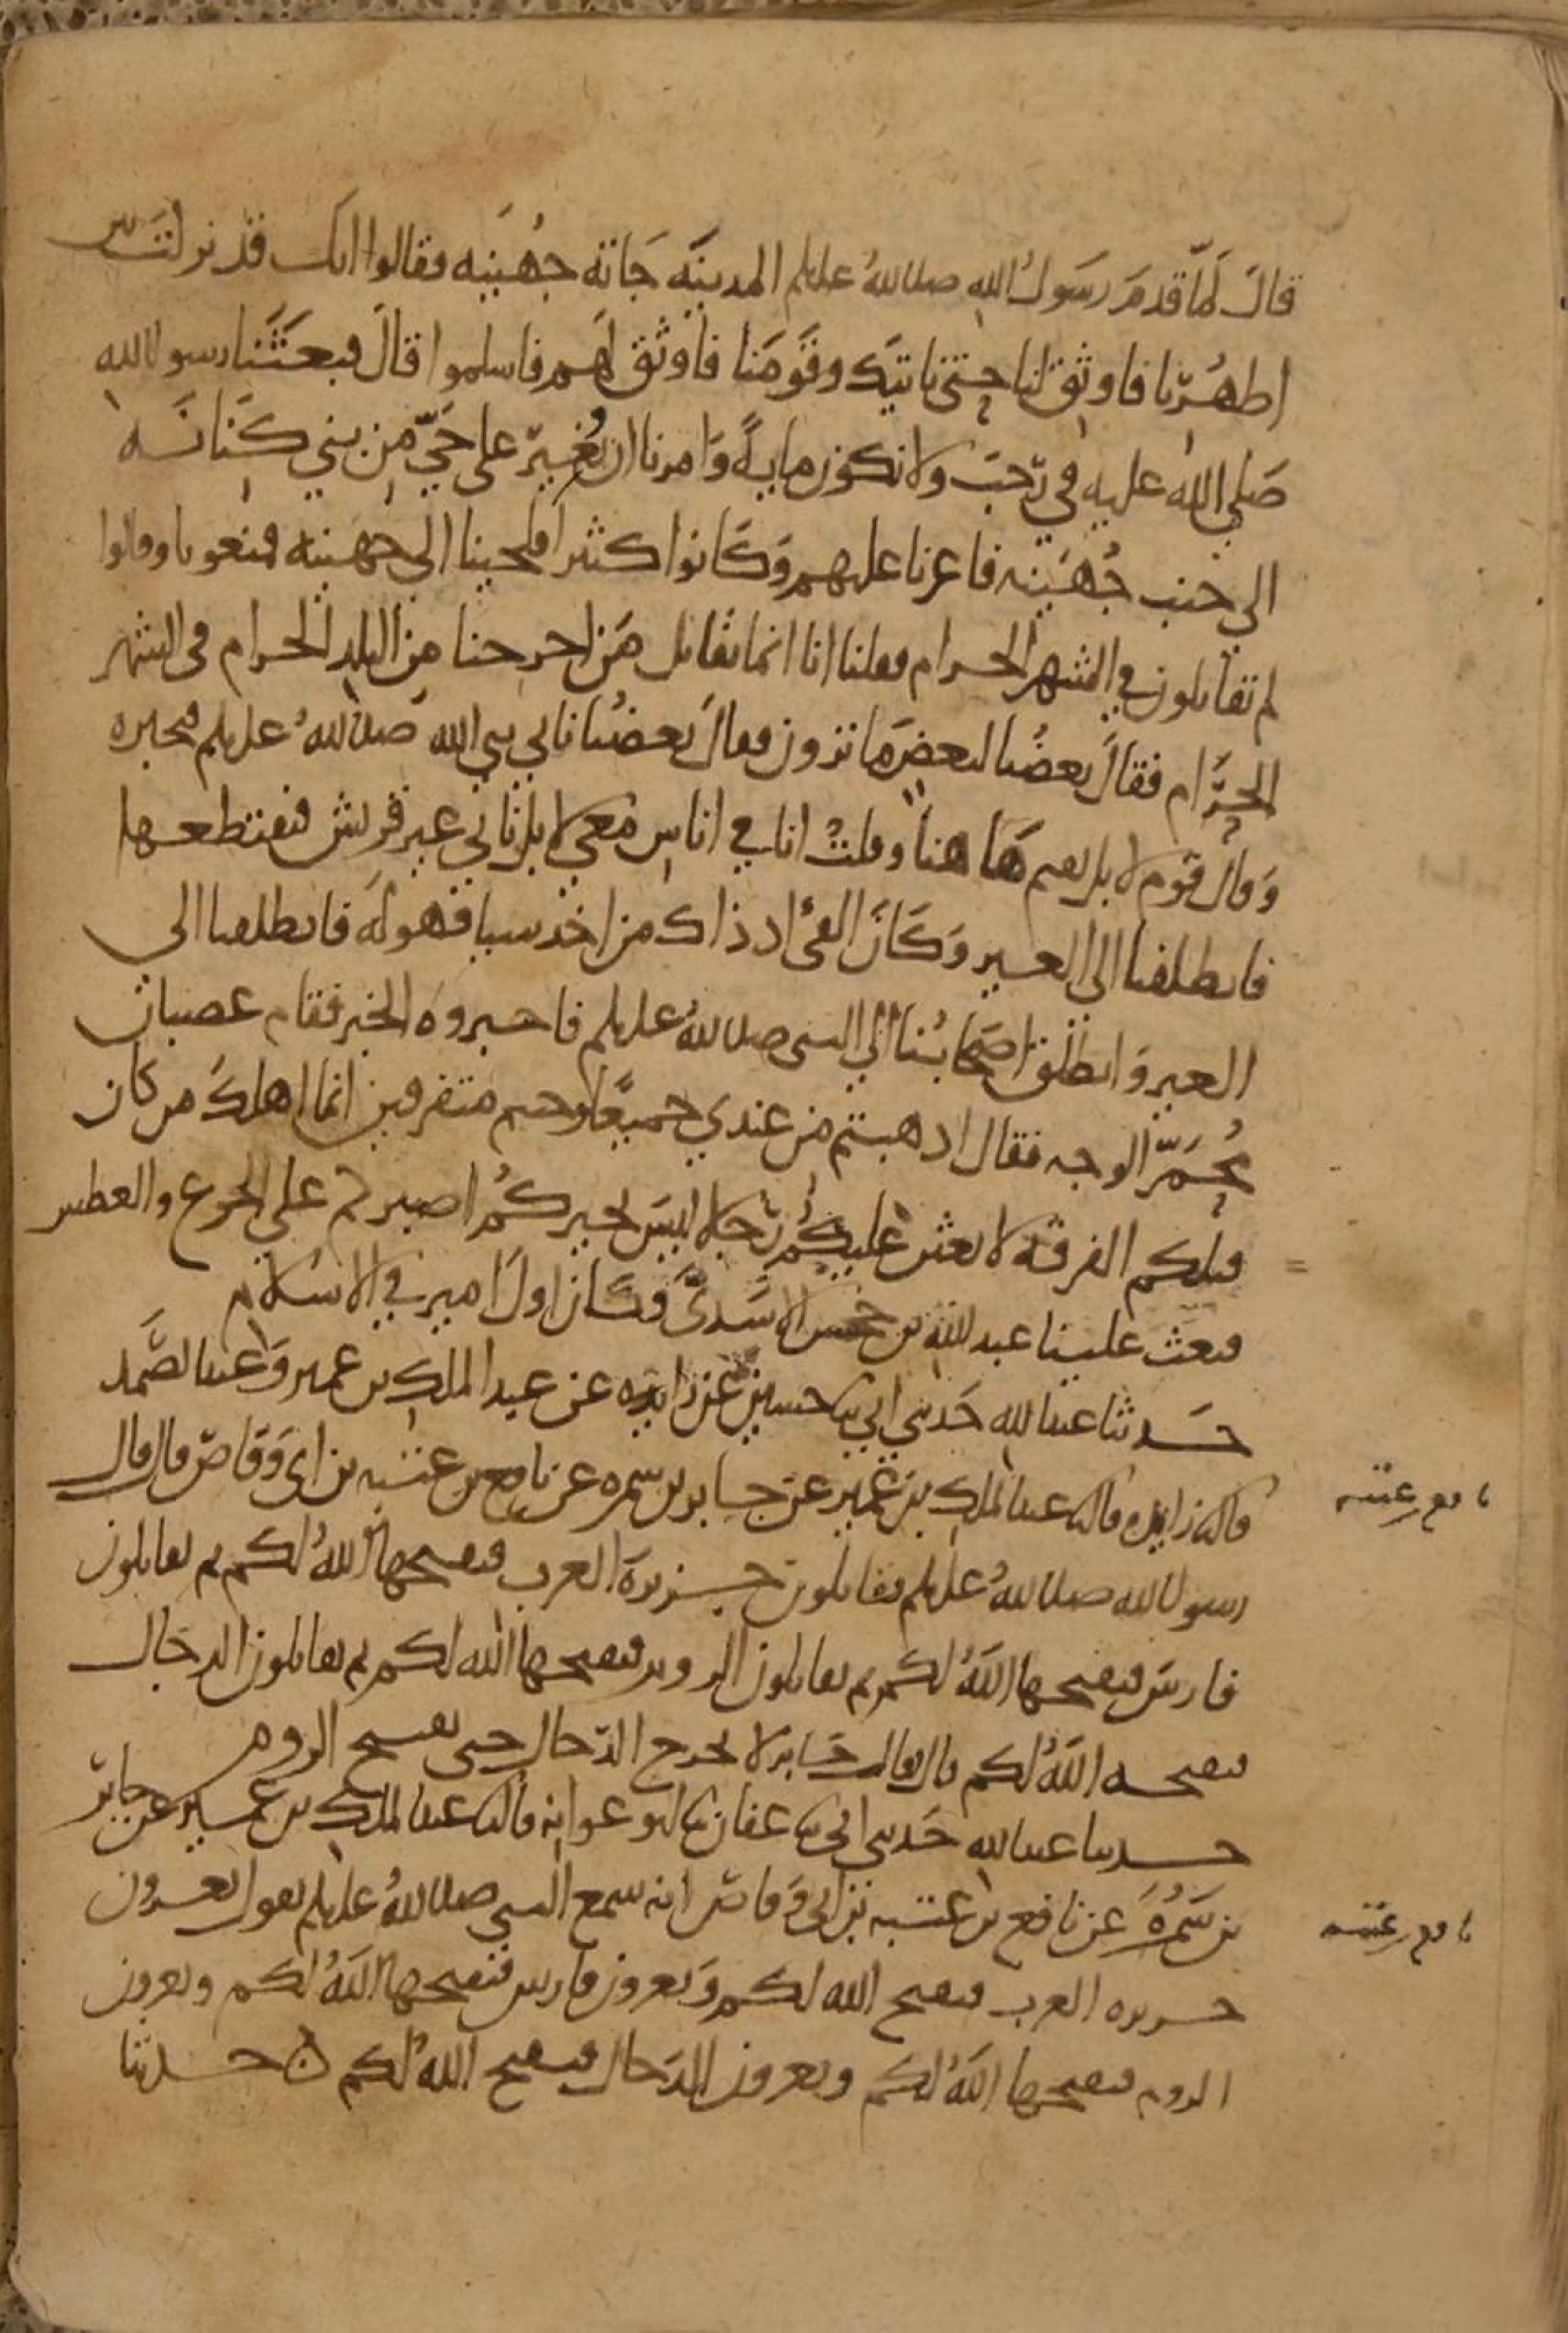 قال لَمّا قدمَ رسَولُ الله صلى اللهُ عليه وسلم المدينَه جَاته جُهَينه فقالوا انك قد نزلت بين
اظهُرنا فاوثق لنا حتى ناتيك وقَومَنا فاوثق لهم فاسلموا قالَ فبعَثَنا رسول الله
صَلى الله عليه في رَجَب ولا نكون مايةً وَامرنا ان نُغير على حَيّ مِن بني كنَانَه
الى جنب جُهَينه فاغرنا عليهم وَكَانوا كثيرا فلجينا الى جهَينه فمنعونا وقالوا
لم تقاتلون في الشهر الحرام فقلنا انا انما نقاتل مَن اخرجنا من البلد الحرام في الشهر
الحَرام فقالَ بعضُنا لبعض مَا ترون فقالَ بعضُنا ناتي نبي الله صلى اللهُ عليه وسلم فنخبره
وَقال قوم لا بل نقيم هَا هنا وقلتُ انا في اناس مَعي لا بل ناتي عير قريش فنقتطعها
فانطلقنا الى العير وَكَانَ الفئ اذ ذاك من اخذ شيا فهو لَه فانطلقنا الى
العير وَانطلق اصَحابُنا الى النبي صلى اللهُ عليه وسلم فاخبروه الخبر فقام غضبان
مُحمَرّ الوجه فقال اذهبتم من عندي جميعًا وجيتم متفرقين انما اهلكَ من كان
قبلكم الفرقه لابعثن عليكُم رَجلا ليسَ بخيركُم اصبركم على الجوع والعطش
فبعث علينا عبد الله بن جحش الاسَدىَّ فكَان اولَ امير في الاسلام
حَدثنا عبد الله حَدثني ابي ثنا حسين عن زايده عن عبد الملك بن عمير وَعبد الصَّمد
قال ثنا زايده قال ثنا عبد الملك بن عُمير عن جابر بن سمره عن نافع بن عتبه بن ابي وَقاصّ قال قال
رسول الله صلى اللهُ عليه وسلم تقاتلون جزيرة العرب فيفتحها اللهُ لكم ثم تقاتلون
فارسَ فيفتحها اللهُ لكم ثم تقاتلون الروم فيفتحها الله لكم ثم تقاتلون الدجال
فيفتحه اللهُ لكم قال فقال جَابر لا يخرج الدّجال حتى تفتح الروم
حدثنا عبد الله حَدثني ابي ثنا عفان ثنا ابو عوانه قال ثنا عبد الملك بن عمير عن جابر
بن سَمُرهَ عن نافع بن عتبه بن ابي وَقاص انه سمع النبي صلى اللهُ عليه وسلم يقول تغزون
جزيره العرب فيفتح الله لكم وَتغزون فارس فيفتحها اللهُ لكم وتغزون
الروم فيفتحها اللهُ لكم وتغزون الدَجال فيفتح اللهُ لكم ه حدثنا
نافع بن عتبه
نافع بن عتبه